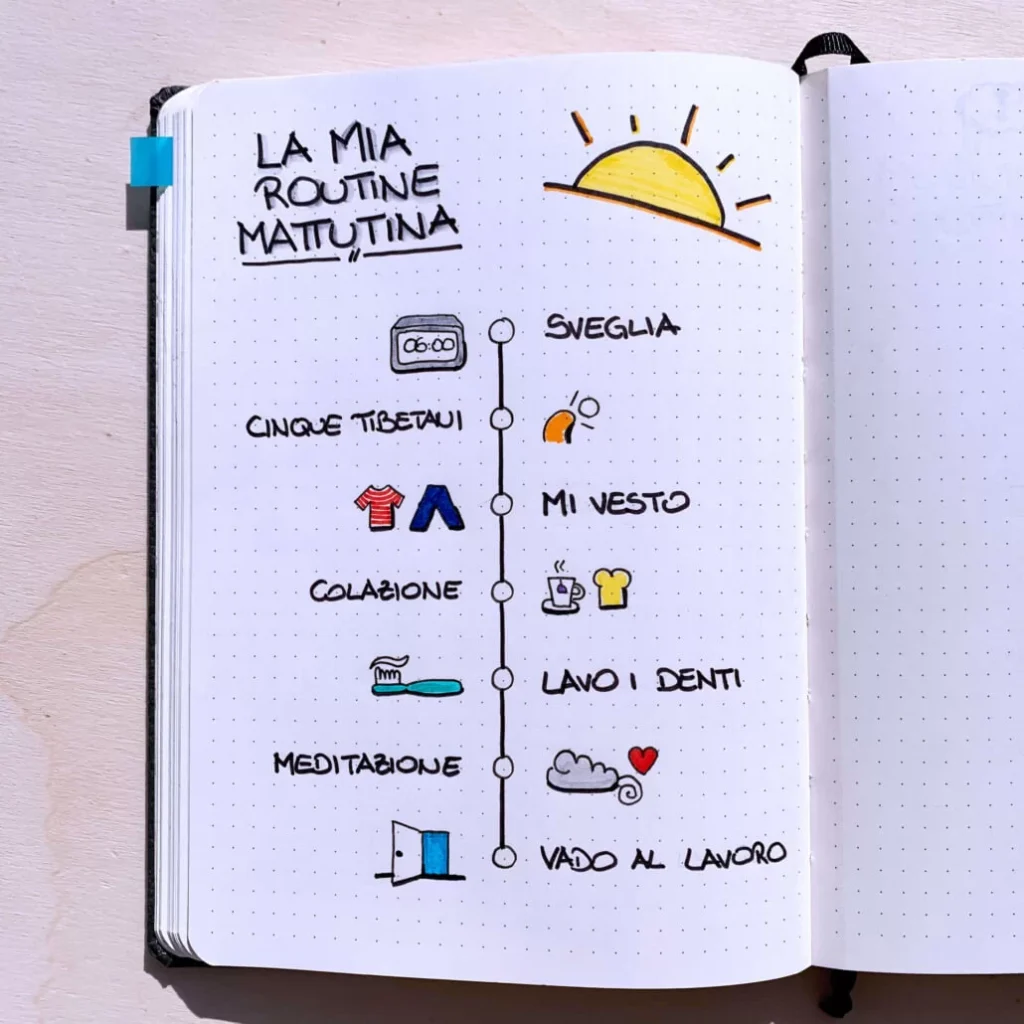 LA MIA
ROUTINE
MATTUTINA
06:00
SVEGLIA
CINQUE TIBETANI
MI VESTO
COLAZIONE
LAVO I DENTI
MEDITAZIONE
VADO AL LAVORO